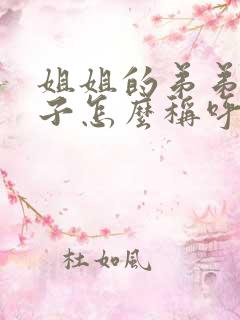 姐姐的弟弟
子怎麼稱呼
杜如風